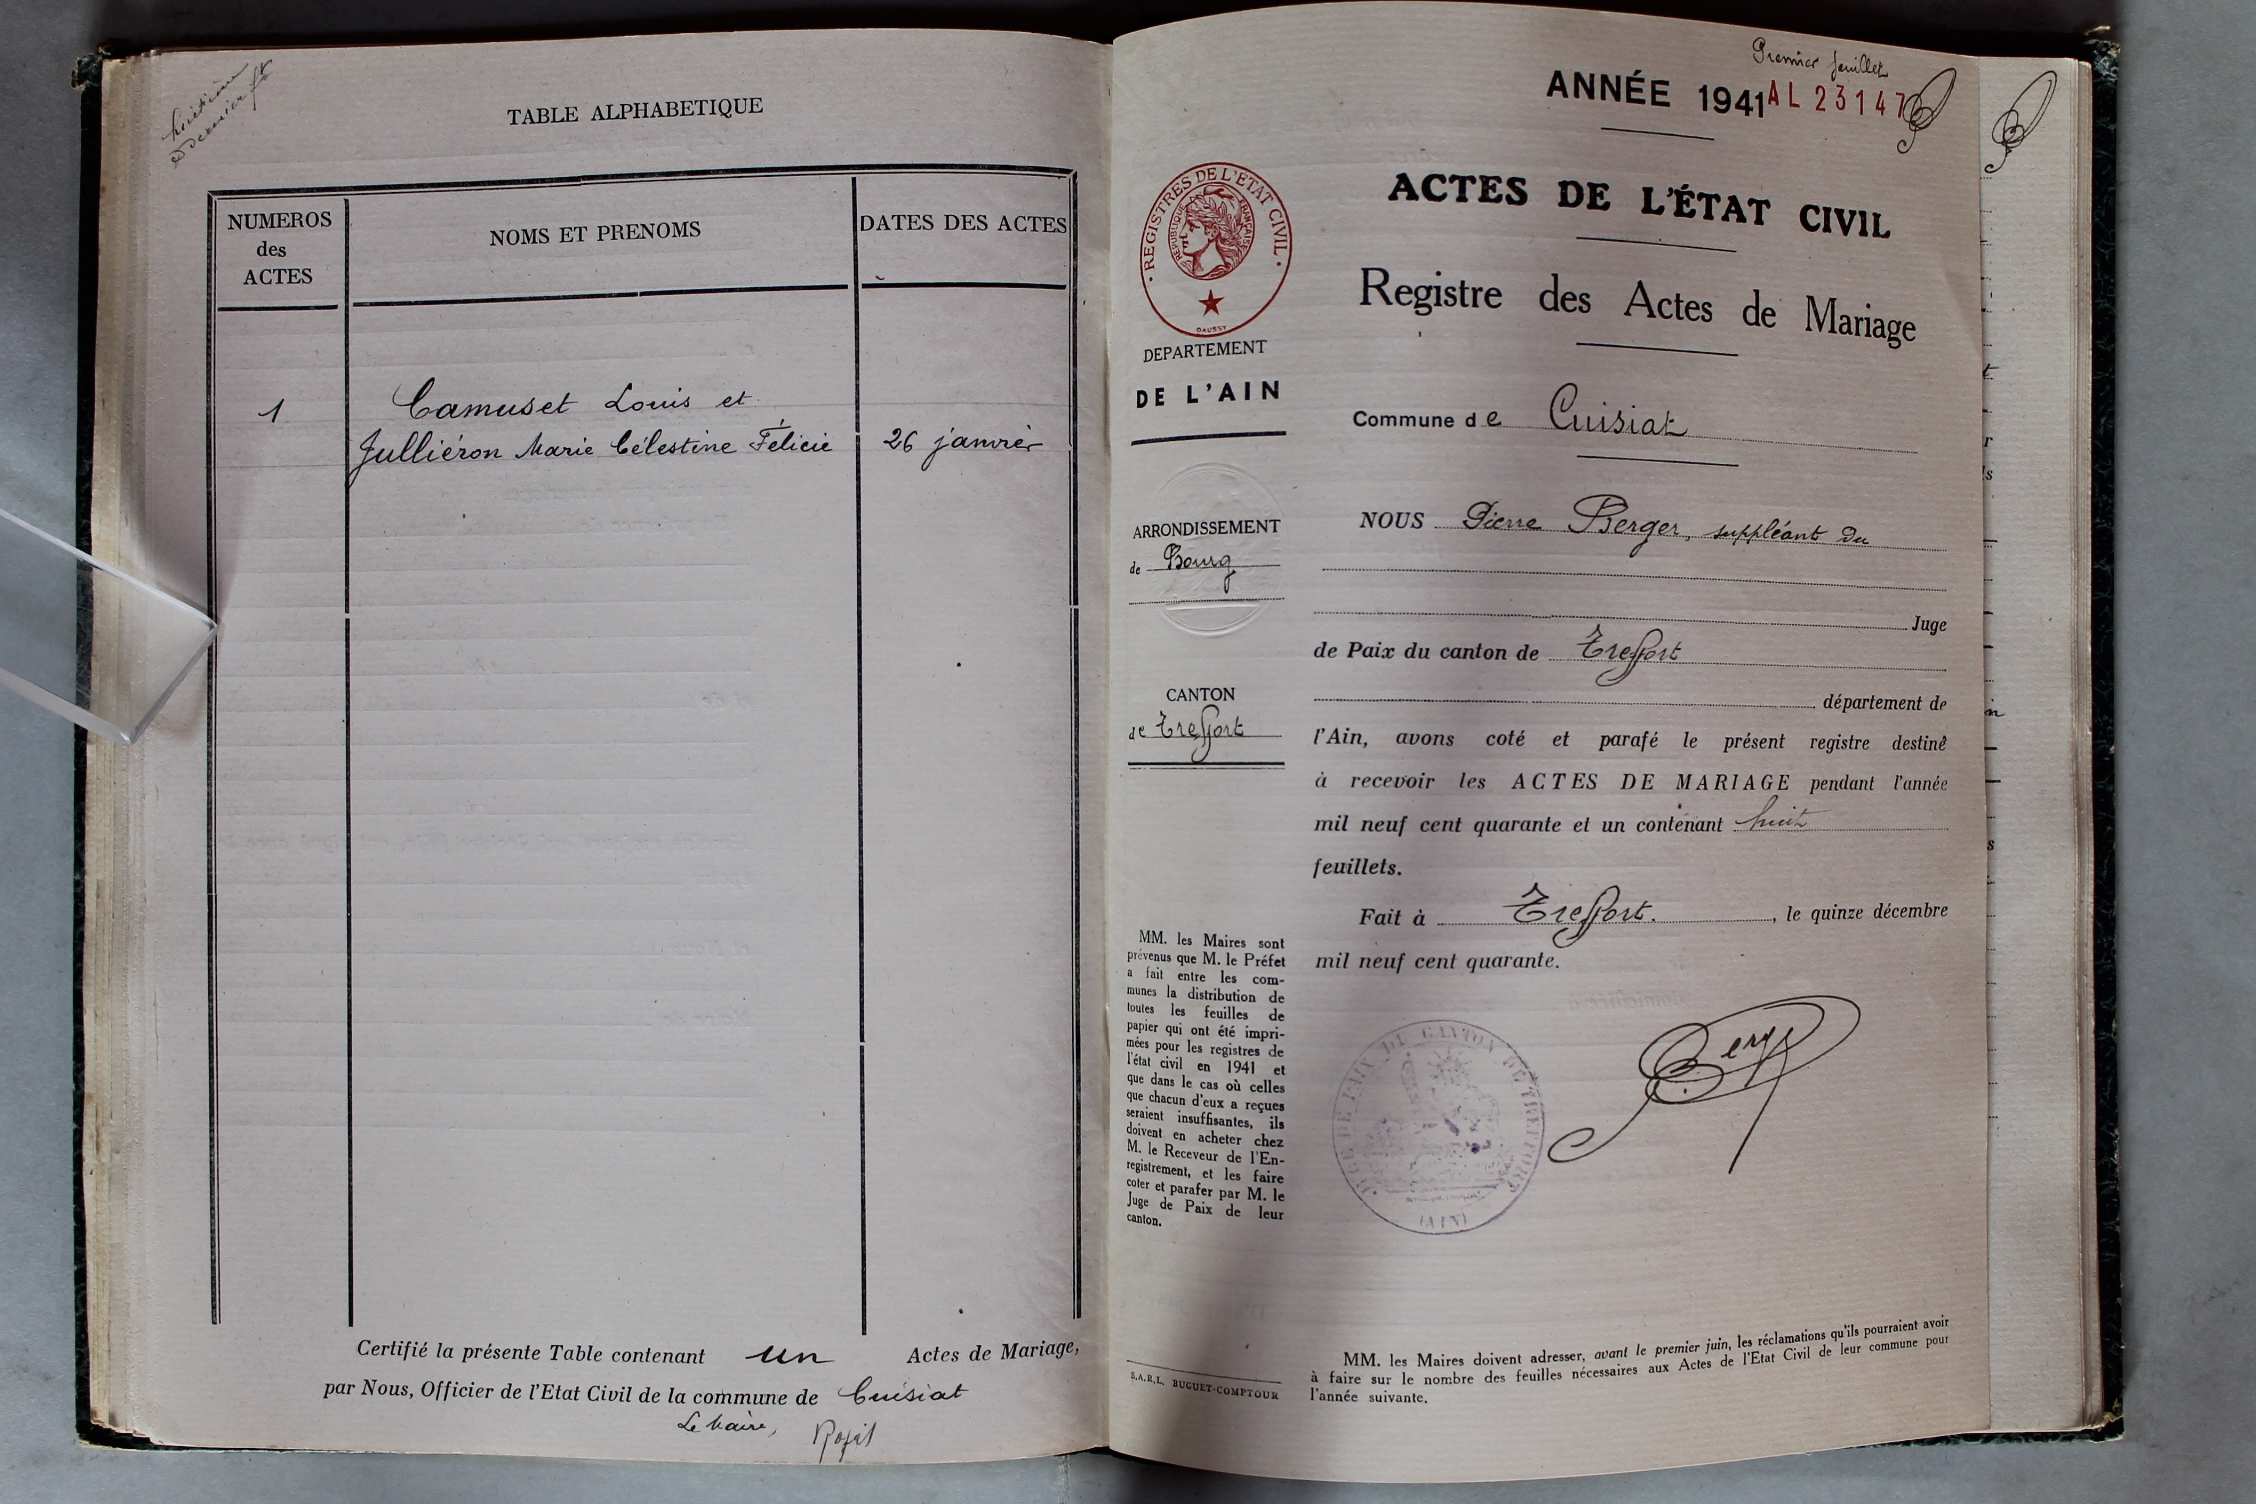 huitième
et dernier ft
TABLE ALPHABETIQUE
NUMEROS
des
ACTES
NOMS ET PRENOMS
DATES DES ACTES
1
Camuset Louis et
Julliéron Marie Célestine Félicie
26 janvier
Certifié la présente Table contenant un Actes de Mariage,
par Nous, Officier de l'Etat Civil de la commune de Cuisiat
Le Maire,
Premier feuillet
ANNÉE 1941
AL 23147
ACTES DE L'ÉTAT CIVIL
Registre des Actes de Mariage
Commune de Cuisiat
REGISTRES DE L'ETAT CIVIL
REPUBLIQUE FRANÇAISE
DAUSSY
DEPARTEMENT
DE L'AIN
ARRONDISSEMENT
de Bourg
CANTON
de Treffort
MM. les Maires sont
prévenus que M. le Préfet
a fait entre les com-
munes la distribution de
toutes les feuilles de
papier qui ont été impri-
mées pour les registres de
l'état civil en 1941 et
que dans le cas où celles
que chacun d'eux a reçues
seraient insuffisantes, ils
doivent en acheter chez
M. le Receveur de l'En-
registrement, et les faire
coter et parafer par M. le
Juge de Paix de leur
canton.
S.A.R.L. BUGUET-COMPTOUR
NOUS Pierre Berger, suppléant du
Juge
de Paix du canton de Treffort
département de
l'Ain, avons coté et parafé le présent registre destiné
à recevoir les ACTES DE MARIAGE pendant l'année
mil neuf cent quarante et un contenant huit
feuillets.
Fait à Treffort. , le quinze décembre
mil neuf cent quarante.
Berger
DU CANTON DE TREFFORT
(AIN)
MM. les Maires doivent adresser, avant le premier juin, les réclamations qu'ils pourraient avoir
à faire sur le nombre des feuilles nécessaires aux Actes de l'Etat Civil de leur commune pour
l'année suivante.